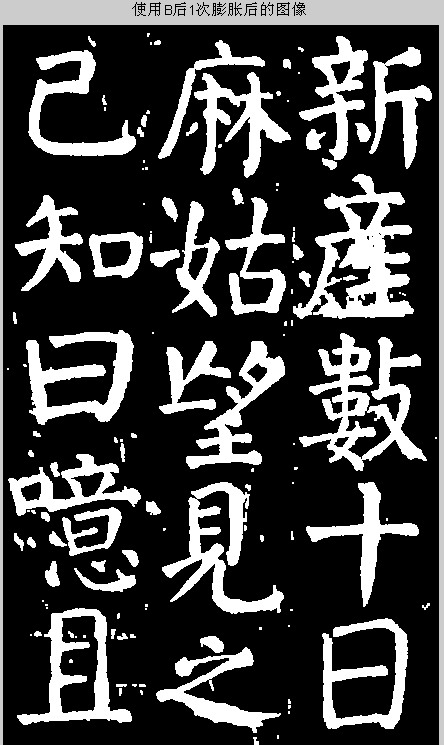 使用B后1次膨胀后的图像
新產數十日
麻姑望見之
已知曰噫且